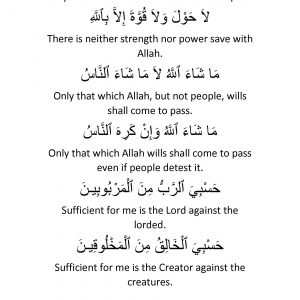 لَا حَوْلَ وَلَا قُوَّةَ إِلَّا بِٱللَّهِ
There is neither strength nor power save with
Allah.
مَا شَاءَ ٱللَّهُ لَا مَا شَاءَ ٱلنَّاسُ
Only that which Allah, but not people, wills
shall come to pass.
مَا شَاءَ ٱللَّهُ وَإِنْ كَرِهَ ٱلنَّاسُ
Only that which Allah wills shall come to pass
even if people detest it.
حَسْبِيَ ٱلرَّبُّ مِنَ ٱلْمَرْبُوبِينَ
Sufficient for me is the Lord against the
lorded.
حَسْبِيَ ٱلْخَالِقُ مِنَ ٱلْمَخْلُوقِينَ
Sufficient for me is the Creator against the
creatures.